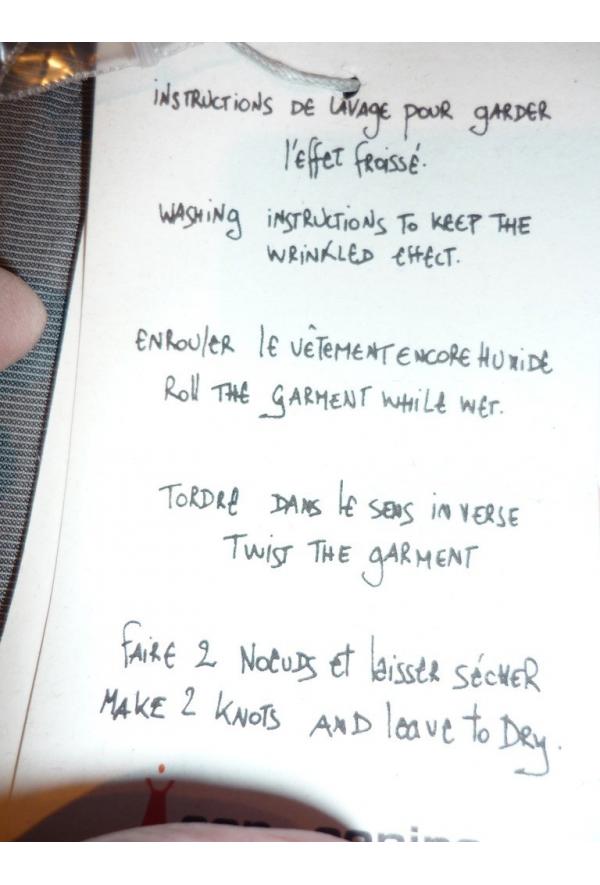 INSTRUCTIONS DE LAVAGE POUR GARDER
l'effet froissé.
WASHING INSTRUCTIONS TO KEEP THE
WRINKLED EFFECT.
ENROULER LE VÊTEMENT ENCORE HUMIDE
Roll THE GARMENT WHILE WET.
TORDRE DANS LE SENS INVERSE
TWIST THE GARMENT
FAIRE 2 NOEUDS ET laisser SÉCHER
MAKE 2 KNOTS AND leave to Dry.